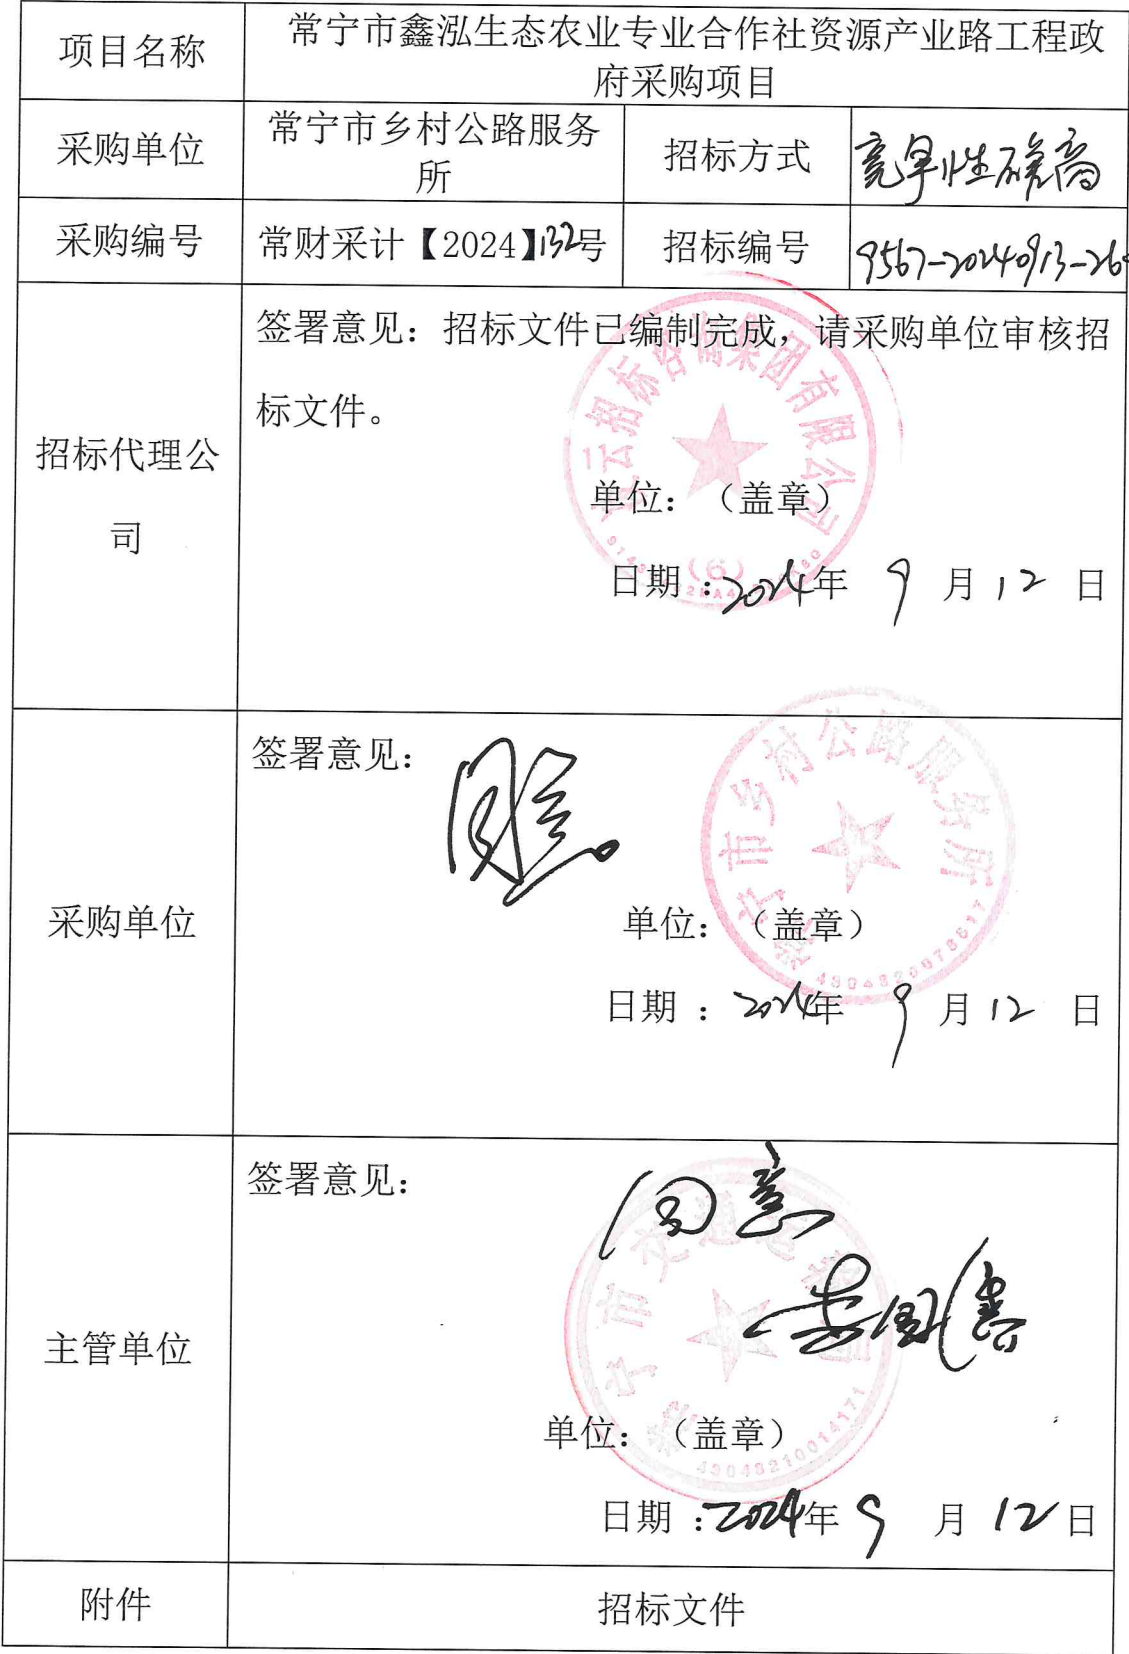 项目名称
常宁市鑫泓生态农业专业合作社资源产业路工程政
府采购项目
采购单位
常宁市乡村公路服务
所
招标方式
竞争性磋商
采购编号
常财采计【2024】132号
招标编号
9567-20240913-26
招标代理公
司
签署意见：招标文件已编制完成，请采购单位审核招
标文件。
云招标咨询集团有限公司
(6)
单位：（盖章）
日期：2024年 9 月 12 日
采购单位
签署意见：
同意
常宁市乡村公路服务所
单位：（盖章）
日期：2024年 9 月 12 日
主管单位
签署意见：
同意
常宁市交通运输局
43048210014171
单位：（盖章）
日期：2024年 9 月 12 日
附件
招标文件